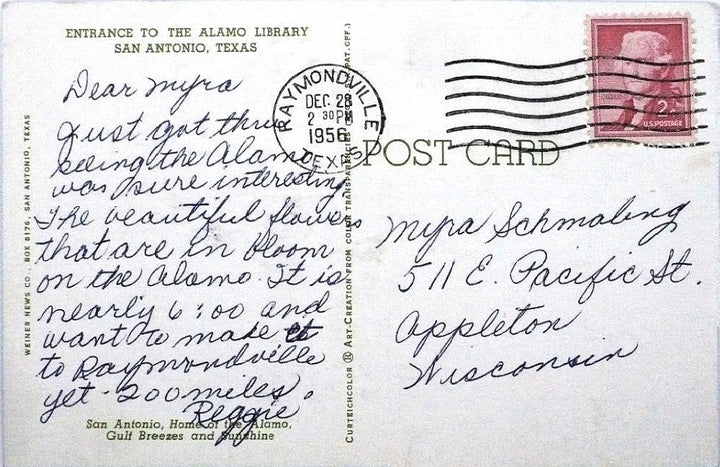 ENTRANCE TO THE ALAMO LIBRARY
SAN ANTONIO, TEXAS
Dear Myra
Just got thru
seeing the Alamo
was sure interesting
The beautiful flowers
that are in bloom
on the Alamo. It is
nearly 6:00 and
want to make it
to Raymondville
yet - 200 miles.
Reggie
San Antonio, Home of the Alamo,
Gulf Breezes and Sunshine
WEINER NEWS CO., BOX 8176, SAN ANTONIO, TEXAS
CURTEICHCOLOR ® ART-CREATION FROM COLOR TRANSPARENCIES PAT. OFF.)
RAYMONDVILLE
DEC 28
2 30 PM
1956
TEXAS
POST CARD
2¢
U.S. POSTAGE
Myra Schmaling
511 E. Pacific St.
Appleton
Wisconsin